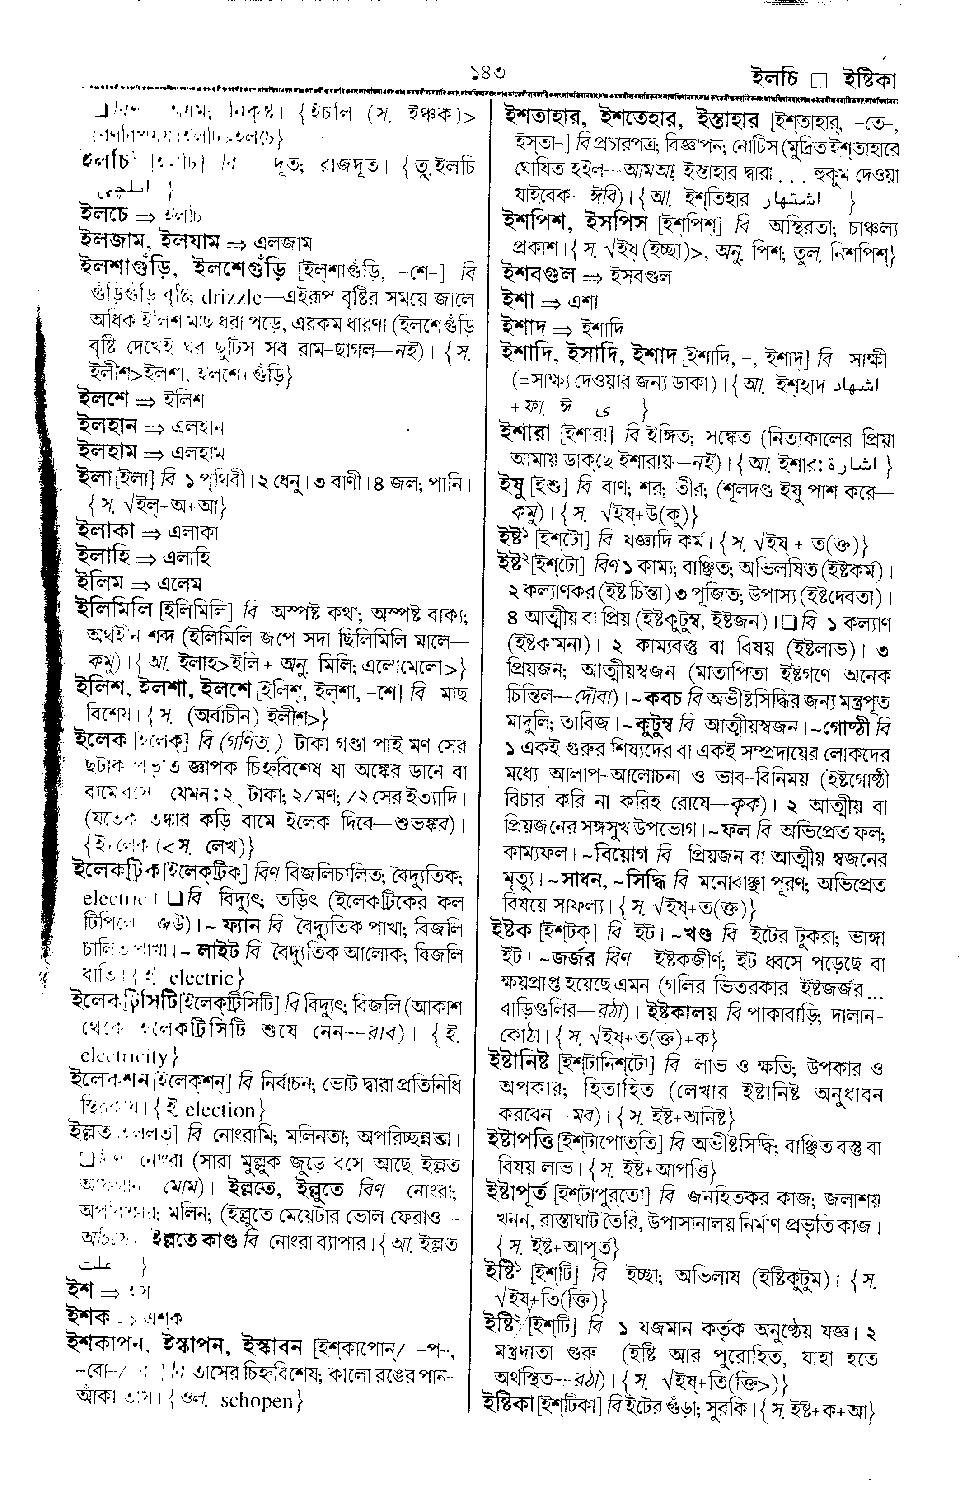 ১৪৩
ইলচি □ ইষ্টিকা
নিকৃষ্ট। {ইচলি (স. ইঞ্চক)>
দূত; রাজদূত। {তু. ইলচি
ایلچی }
ইলচে ⇒ ইলচি
ইলজাম, ইলযাম ⇒ এলজাম
ইলশাগুঁড়ি, ইলশেগুঁড়ি [ইল্‌শাগুঁড়ি, -শে-] বি
গুঁড়িগুঁড়ি বৃষ্টি; drizzle—এইরূপ বৃষ্টির সময়ে জালে
অধিক ইলিশ মাছ ধরা পড়ে, এরকম ধারণা (ইলশেগুঁড়ি
বৃষ্টি দেখেই ঘর ছুটিস সব রাম-ছাগল—নই)। {স.
ইলীশ>ইলশা, ইলশে। গুঁড়ি}
ইলশে ⇒ ইলিশ
ইলহান ⇒ এলহান
ইলহাম ⇒ এলহাম
ইলা [ইলা] বি ১ পৃথিবী। ২ ধেনু। ৩ বাণী। ৪ জল; পানি।
{স. √ইল্‌-অ+আ}
ইলাকা ⇒ এলাকা
ইলাহি ⇒ এলাহি
ইলিম ⇒ এলেম
ইলিমিলি [ইলিমিলি] বি অস্পষ্ট কথা; অস্পষ্ট বাক্য;
অর্থহীন শব্দ (ইলিমিলি জপে সদা ছিলিমিলি মালে—
কমু)। {আ. ইলাহ>ইলি+ অনু. মিলি; এলোমেলো>}
ইলিশ, ইলশা, ইলশে [ইলিশ্‌, ইল্‌শা, -শে] বি মাছ
বিশেষ। {স. (অর্বাচীন) ইলীশ>}
ইলেক [ইলেক্‌] বি (গণিত) টাকা গণ্ডা পাই মণ সের
ছটাক প্রভৃতি জ্ঞাপক চিহ্নবিশেষ যা অঙ্কের ডানে বা
বামে বসে যেমন: ২৲ টাকা; ২/মণ; /২ সের ইত্যাদি।
কড়ি বামে ইলেক দিবে—শুভঙ্কর)।
{ইলেক (< স. লেখ)}
ইলেকট্রিক [ইলেক্‌ট্রিক্‌] বিণ বিজলিচালিত; বৈদ্যুতিক;
electric। □ বি বিদ্যুৎ; তড়িৎ (ইলেকট্রিকের কল
টিপিলে— জউ)। ~ ফ্যান বি বৈদ্যুতিক পাখা; বিজলি
চালিত পাখা। ~ লাইট বি বৈদ্যুতিক আলোক; বিজলি
বাতি। {ই. electric}
ইলেকট্রিসিটি [ইলেক্‌ট্রিসিটি] বি বিদ্যুৎ; বিজলি (আকাশ
থেকে ইলেকট্রিসিটি শুষে নেন—রাব)। {ই.
electricity}
ইলেকশন [ইলেক্‌শন্‌] বি নির্বাচন; ভোট দ্বারা প্রতিনিধি
{ই. election}
ইল্লত বি নোংরামি; মলিনতা; অপরিচ্ছন্নতা।
□ বিণ নোংরা (সারা মুল্লুক জুড়ে বসে আছে ইল্লত
(মোম)। ইল্লতে, ইল্লুতে বিণ নোংরা;
মলিন; (ইল্লুতে মেয়েটার ভোল ফেরাও -
ইল্লতে কাণ্ড বি নোংরা ব্যাপার। {আ. ইল্লত
علت }
ইশ ⇒
ইশক ⇒ এশক
ইশকাপন, ইস্কাপন, ইস্কাবন [ইশ্‌কাপোন্‌/ -প-,
-বো-/ বি তাসের চিহ্নবিশেষ; কালো রঙের পান-
আঁকা তাস। {ওল. schopen}
ইশতাহার, ইশতেহার, ইস্তাহার [ইশ্‌তাহার্‌, -তে-,
ইস্‌তা-] বি প্রচারপত্র; বিজ্ঞাপন; নোটিস (মুদ্রিত ইশ্‌তাহারে
ঘোষিত হইল—আমআ; ইস্তাহার দ্বারা ... হুকুম দেওয়া
যাইবেক- ঈবি)। {আ. ইশ্‌তিহার اشتهار }
ইশপিশ, ইসপিস [ইশ্‌পিশ্‌] বি অস্থিরতা; চাঞ্চল্য
প্রকাশ। {স. √ইষ্‌ (ইচ্ছা)>, অনু. পিশ; তুল. নিশপিশ}
ইশবগুল ⇒ ইসবগুল
ইশা ⇒ এশা
ইশাদ ⇒ ইশাদি
ইশাদি, ইসাদি, ইশাদ [ইশাদি, -, ইশাদ্‌] বি সাক্ষী
(=সাক্ষ্য দেওয়ার জন্য ডাকা)। {আ. ইশ্‌হাদ اشهاد
+ ফা. ঈ ی }
ইশারা [ইশারা] বি ইঙ্গিত; সঙ্কেত (নিত্যকালের প্রিয়া
আমায় ডাকছে ইশারায়—নই)। {আ. ইশারঃ اشارة }
ইষু [ইশু] বি বাণ; শর; তীর; (শূলদণ্ড ইষু পাশ করে—
কমু)। {স. √ইষ্‌+উ(কু)}
ইষ্ট১ [ইশ্‌টো] বি যজ্ঞাদি কর্ম। {স. √ইষ্‌ + ত(ক্ত)}
ইষ্ট২ [ইশ্‌টো] বিণ ১ কাম্য; বাঞ্ছিত; অভিলষিত (ইষ্টকর্ম)।
২ কল্যাণকর (ইষ্ট চিন্তা) ৩ পূজিত; উপাস্য (ইষ্টদেবতা)।
৪ আত্মীয় বা প্রিয় (ইষ্টকুটুম্ব, ইষ্টজন)। □ বি ১ কল্যাণ
(ইষ্টকামনা)। ২ কাম্যবস্তু বা বিষয় (ইষ্টলাভ)। ৩
প্রিয়জন; আত্মীয়স্বজন (মাতাপিতা ইষ্টগণে অনেক
চিন্তিল—দৌবা)। ~ কবচ বি অভীষ্টসিদ্ধির জন্য মন্ত্রপূত
মাদুলি; তাবিজ। ~ কুটুম্ব বি আত্মীয়স্বজন। ~ গোষ্ঠী বি
১ একই গুরুর শিষ্যদের বা একই সম্প্রদায়ের লোকদের
মধ্যে আলাপ-আলোচনা ও ভাব-বিনিময় (ইষ্টগোষ্ঠী
বিচার করি না করিহ রোষে—কৃক)। ২ আত্মীয় বা
প্রিয়জনের সঙ্গসুখ উপভোগ। ~ ফল বি অভিপ্রেত ফল;
কাম্যফল। ~ বিয়োগ বি প্রিয়জন বা আত্মীয় স্বজনের
মৃত্যু। ~ সাধন, ~ সিদ্ধি বি মনোবাঞ্ছা পূরণ; অভিপ্রেত
বিষয়ে সাফল্য। {স. √ইষ্‌+ত(ক্ত)}
ইষ্টক [ইশ্‌টক্‌] বি ইট। ~ খণ্ড বি ইটের টুকরা; ভাঙ্গা
ইট। ~ জর্জর বিণ ইষ্টকজীর্ণ; ইট ধ্বসে পড়েছে বা
ক্ষয়প্রাপ্ত হয়েছে এমন (গলির ভিতরকার ইষ্টজর্জর ...
বাড়িগুলির—রঠা)। ইষ্টকালয় বি পাকাবাড়ি; দালান-
কোঠা। {স. √ইষ্‌+ত(ক্ত)+ক}
ইষ্টানিষ্ট [ইশ্‌টানিশ্‌টো] বি লাভ ও ক্ষতি; উপকার ও
অপকার; হিতাহিত (লেখার ইষ্টানিষ্ট অনুধাবন
করবেন—মব)। {স. ইষ্ট+অনিষ্ট}
ইষ্টাপত্তি [ইশ্‌টাপোত্‌তি] বি অভীষ্টসিদ্ধি; বাঞ্ছিত বস্তু বা
বিষয় লাভ। {স. ইষ্ট+আপত্তি}
ইষ্টাপূর্ত [ইশ্‌টাপুরতো] বি জনহিতকর কাজ; জলাশয়
খনন, রাস্তাঘাট তৈরি, উপাসনালয় নির্মাণ প্রভৃতি কাজ।
{স. ইষ্ট+আপূর্ত}
ইষ্টি১ [ইশ্‌টি] বি ইচ্ছা; অভিলাষ (ইষ্টিকুটুম)। {স.
√ইষ্‌+তি(ক্তি)}
ইষ্টি২ [ইশ্‌টি] বি ১ যজমান কর্তৃক অনুষ্ঠেয় যজ্ঞ। ২
মন্ত্রদাতা গুরু (ইষ্টি আর পুরোহিত, যাহা হতে
অর্থস্থিত—রঠা)। {স. √ইষ্‌+তি(ক্তি>)}
ইষ্টিকা [ইশ্‌টিকা] বি ইটের গুঁড়া; সুরকি। {স. ইষ্ট+ক+আ}